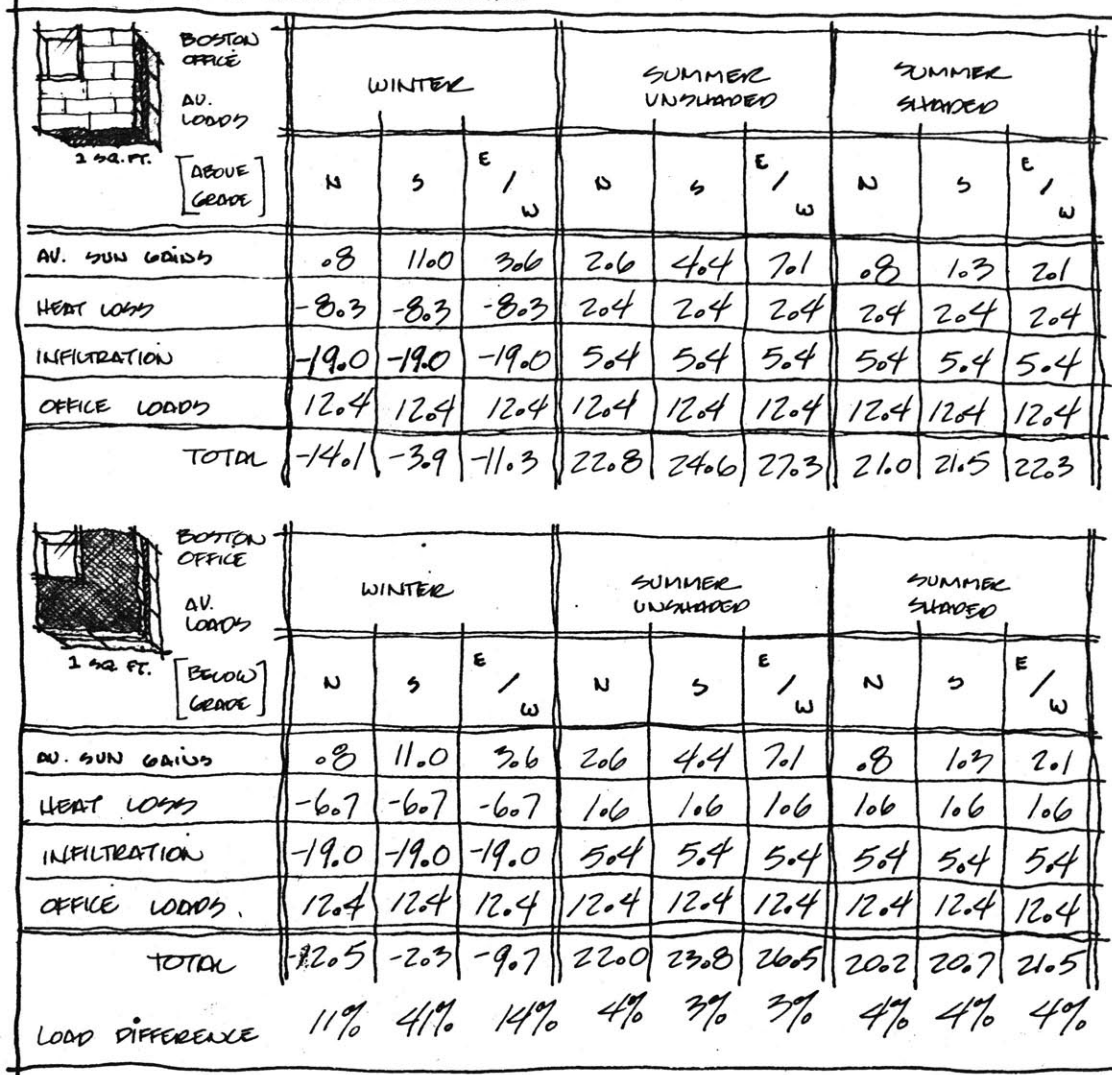 BOSTON
OFFICE
AV.
LOADS
1 SQ. FT.
[ABOVE
GRADE]
WINTER
SUMMER
UNSHADED
SUMMER
SHADED
N S E/W N S E/W N S E/W
AV. SUN GAINS .8 11.0 3.6 2.6 4.4 7.1 .8 1.3 2.1
HEAT LOSS -8.3 -8.3 -8.3 2.4 2.4 2.4 2.4 2.4 2.4
INFILTRATION -19.0 -19.0 -19.0 5.4 5.4 5.4 5.4 5.4 5.4
OFFICE LOADS 12.4 12.4 12.4 12.4 12.4 12.4 12.4 12.4 12.4
TOTAL -14.1 -3.9 -11.3 22.8 24.6 27.3 21.0 21.5 22.3
BOSTON
OFFICE
AV.
LOADS
1 SQ. FT.
[BELOW
GRADE]
WINTER
SUMMER
UNSHADED
SUMMER
SHADED
N S E/W N S E/W N S E/W
AV. SUN GAINS .8 11.0 3.6 2.6 4.4 7.1 .8 1.3 2.1
HEAT LOSS -6.7 -6.7 -6.7 1.6 1.6 1.6 1.6 1.6 1.6
INFILTRATION -19.0 -19.0 -19.0 5.4 5.4 5.4 5.4 5.4 5.4
OFFICE LOADS. 12.4 12.4 12.4 12.4 12.4 12.4 12.4 12.4 12.4
TOTAL -12.5 -2.3 -9.7 22.0 23.8 26.5 20.2 20.7 21.5
LOAD DIFFERENCE 11% 41% 14% 4% 3% 3% 4% 4% 4%